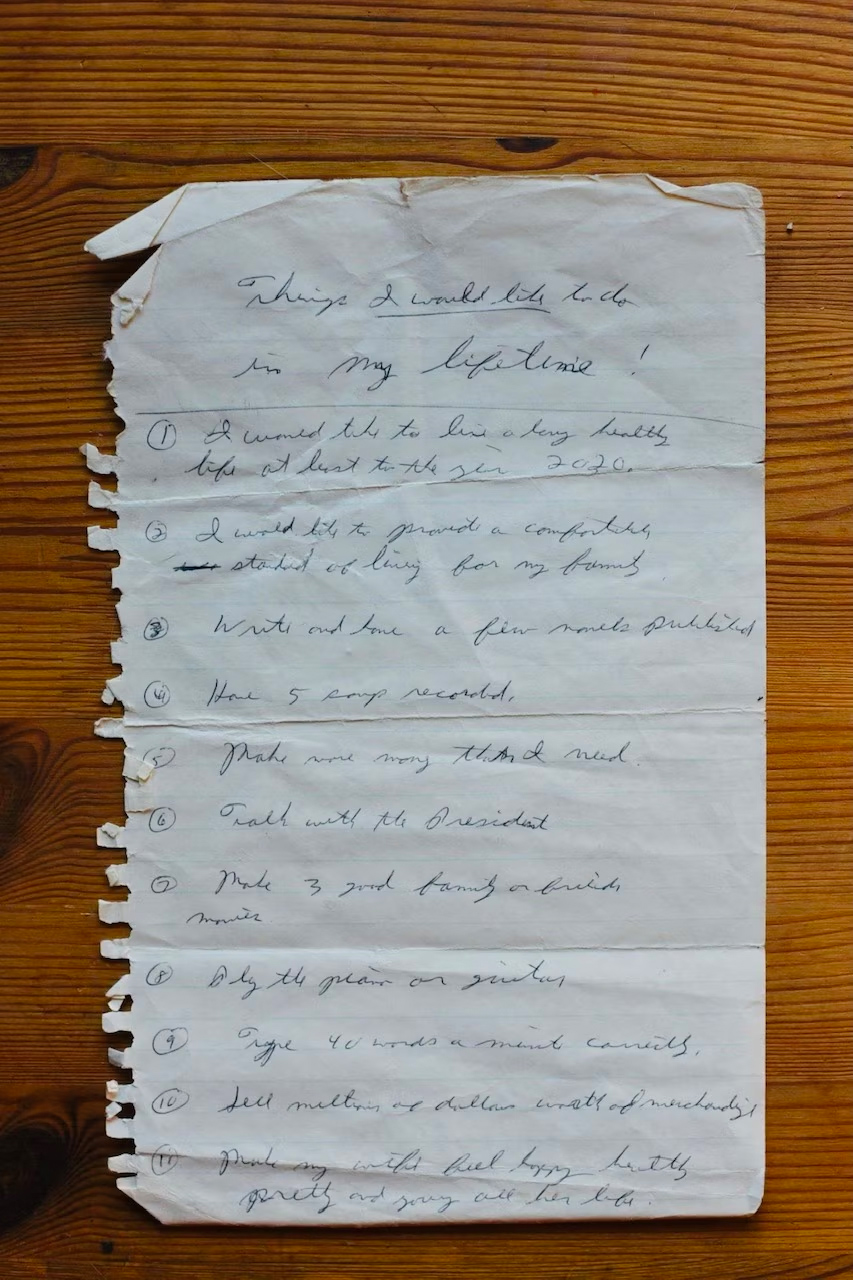 Things I would like to do
in my lifetime!
① I would like to live a long healthy
life at least to the year 2020.
② I would like to provide a comfortable
standard of living for my family
③ Write and have a few novels published
④ Have 5 songs recorded.
⑤ Make more money than I need.
⑥ Talk with the President
⑦ Make 3 good family or
movies
⑧ Play the piano or guitar
⑨ Type 40 words a minute correctly.
⑩ Sell millions of dollars worth of merchandise
⑪ Make my wife feel happy healthy
pretty and young all her life.